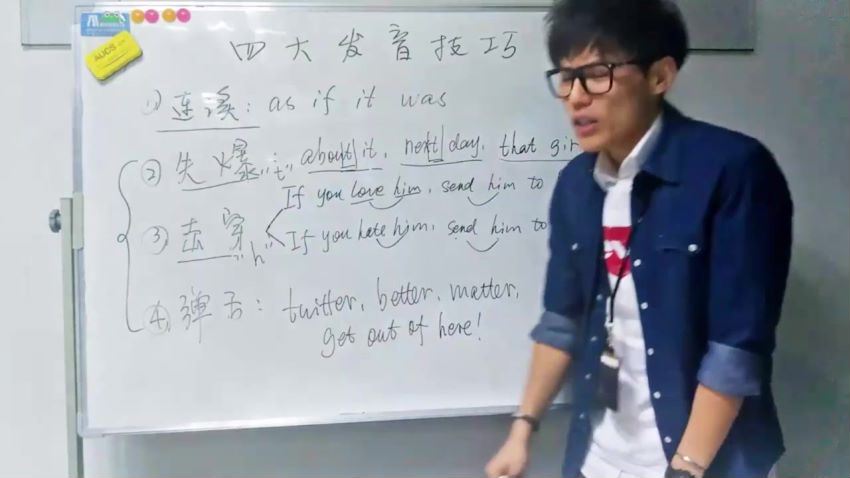 四大发音技巧
AUCS
① 连读: as if it was
② 失爆 "t" about it, next day, that gir
③ 击穿 "h" If you love him, send him to
If you hate him, send him to
④ 弹舌: twitter, better, matter,
get out of here!